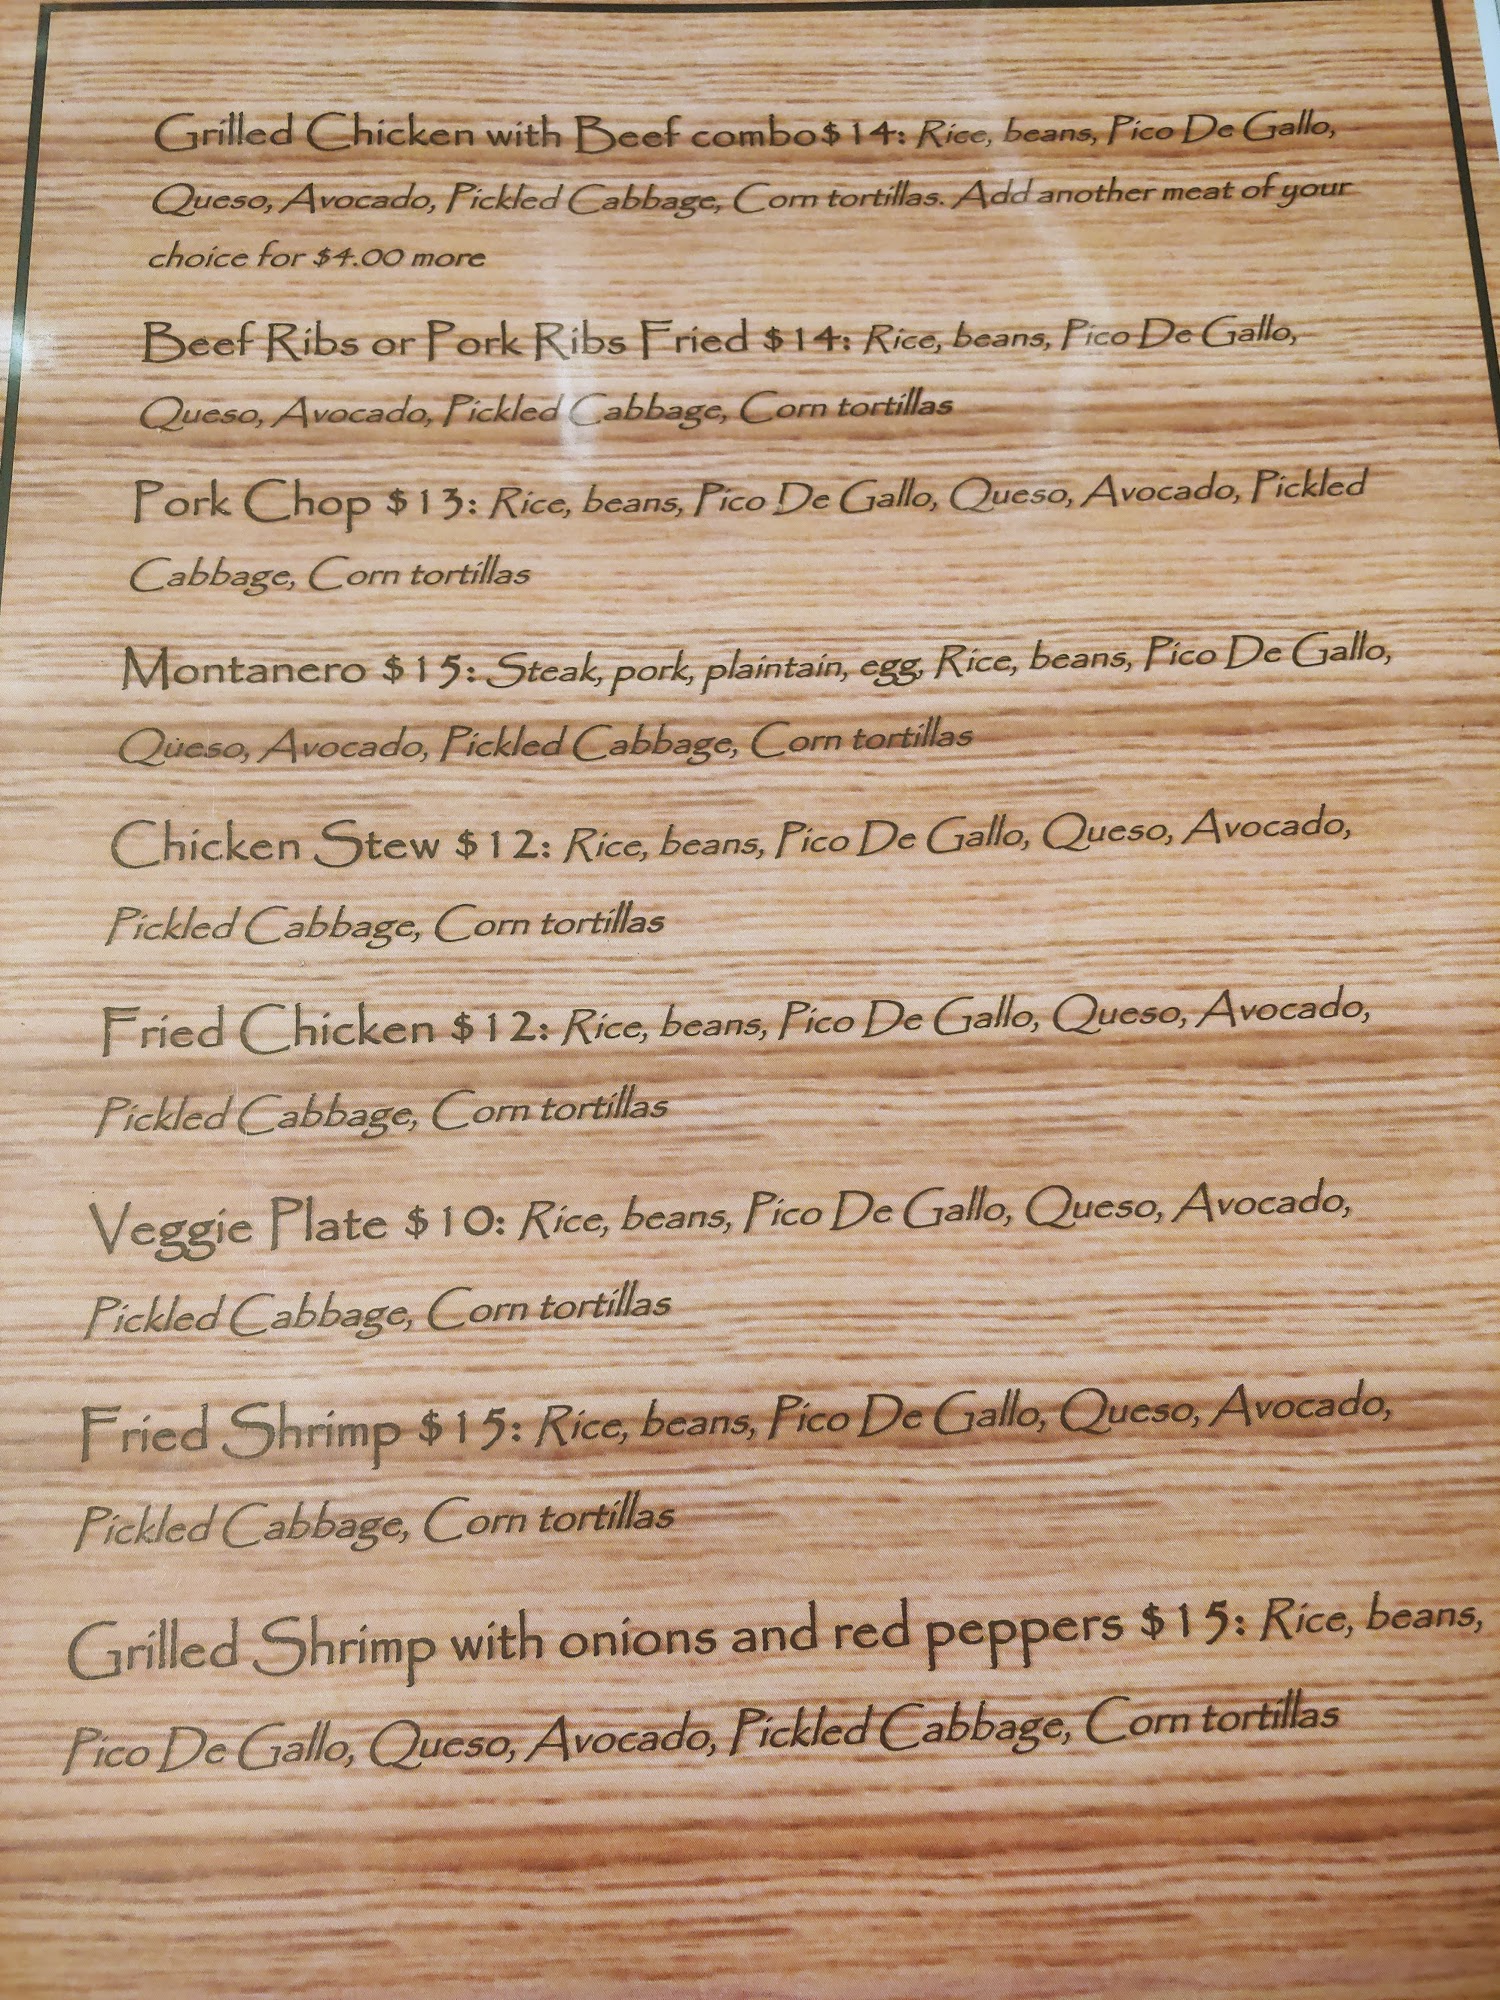 Grilled Chicken with Beef combo$14: Rice, beans, Pico De Gallo,
Queso, Avocado, Pickled Cabbage, Corn tortillas. Add another meat of your
choice for $4.00 more
Beef Ribs or Pork Ribs Fried $14: Rice, beans, Pico De Gallo,
Queso, Avocado, Pickled Cabbage, Corn tortillas
Pork Chop $13: Rice, beans, Pico De Gallo, Queso, Avocado, Pickled
Cabbage, Corn tortillas
Montanero $15: Steak, pork, plaintain, egg, Rice, beans, Pico De Gallo,
Queso, Avocado, Pickled Cabbage, Corn tortillas
Chicken Stew $12: Rice, beans, Pico De Gallo, Queso, Avocado,
Pickled Cabbage, Corn tortillas
Fried Chicken $12: Rice, beans, Pico De Gallo, Queso, Avocado,
Pickled Cabbage, Corn tortillas
Veggie Plate $10: Rice, beans, Pico De Gallo, Queso, Avocado,
Pickled Cabbage, Corn tortillas
Fried Shrimp $15: Rice, beans, Pico De Gallo, Queso, Avocado,
Pickled Cabbage, Corn tortillas
Grilled Shrimp with onions and red peppers $15: Rice, beans,
Pico De Gallo, Queso, Avocado, Pickled Cabbage, Corn tortillas